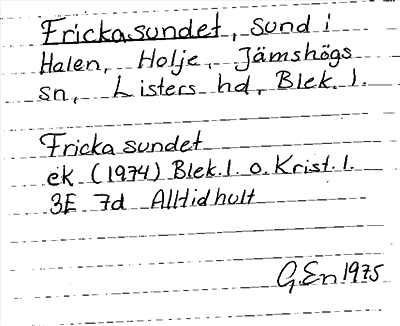 Frickasundet, sund i
Halen, Holje, Jämshögs
sn, Listers hd, Blek. l.
Fricka sundet
ek (1974) Blek. l. o. Krist. l.
3E 7d Alltidhult
G.En 1975